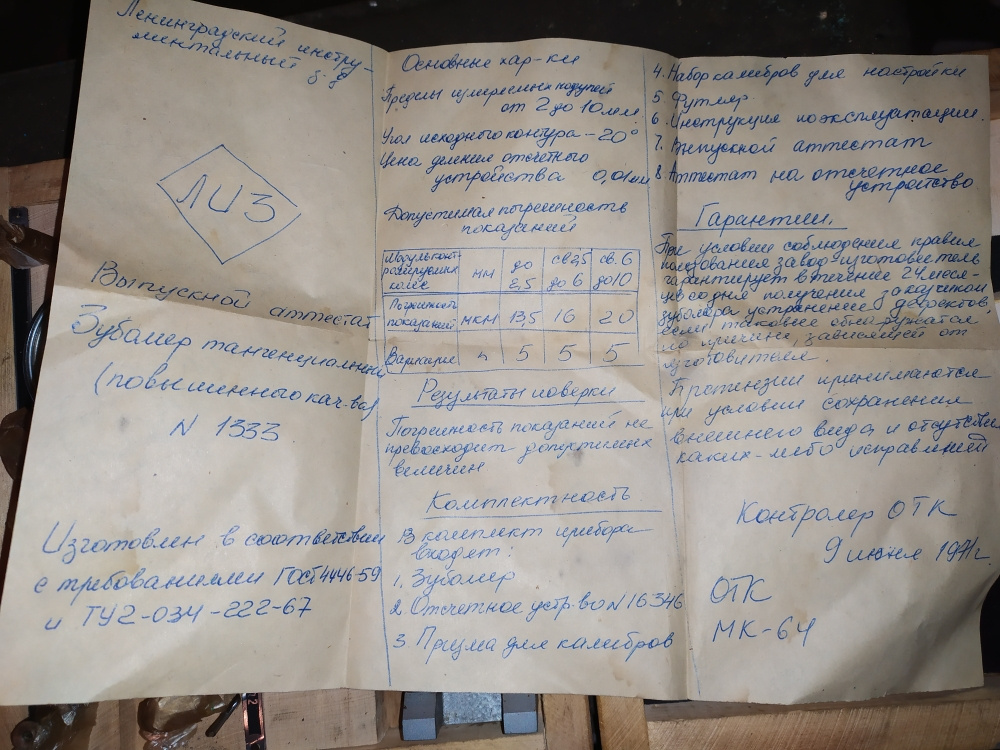 Ленинградский инстру-
ментальный
ЛИЗ
Выпускной аттестат
Зубомер тангенциальный
(повышенного кач-ва)
N 1333
Изготовлен в соответствии
с требованиями ГОСТ 4446-59
и ТУ2-034-222-67
Основные хар-ки
Пределы измеряемых модулей
от 2 до 10 мм
Угол исходного контура - 20°
Цена деления отсчетного
устройства 0,01мм
Допустимая погрешность
показаний
Модуль конт-
ролируемых
колес мм до 2,5 св 2,5 до 6 св. 6 до 10
Погрешность
показаний мкм 13,5 16 20
Вариация " 5 5 5
Результаты поверки
Погрешность показаний не
превосходит допустимых
величин
Комплектность
В комплект прибора
входят:
1. Зубомер
2. Отсчетное устр-во N 16346
3. Призма для калибров
4. Набор калибров для настройки
5. Футляр
6. Инструкция по эксплуатации.
7. Выпускной аттестат
8. Аттестат на отсчетное
устройство
Гарантии.
При условии соблюдения правил
пользования завод-изготовитель
гарантирует в течение 24 меся-
цев со дня получения заказчиком
зубомера устранение дефектов,
если таковые обнаружатся
по причине, зависящей от
изготовителя.
Претензии принимаются
при условии сохранения
внешнего вида и отсутствия
каких-либо исправлений
Контролер ОТК
9 июня 1971г.
ОТК
МК-64